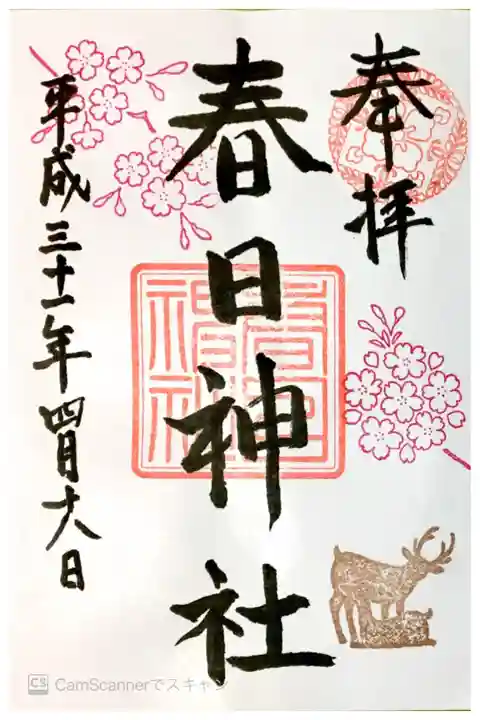 奉拝
春日神社
平成三十一年四月十六日
春日神社
CS CamScannerでスキャン